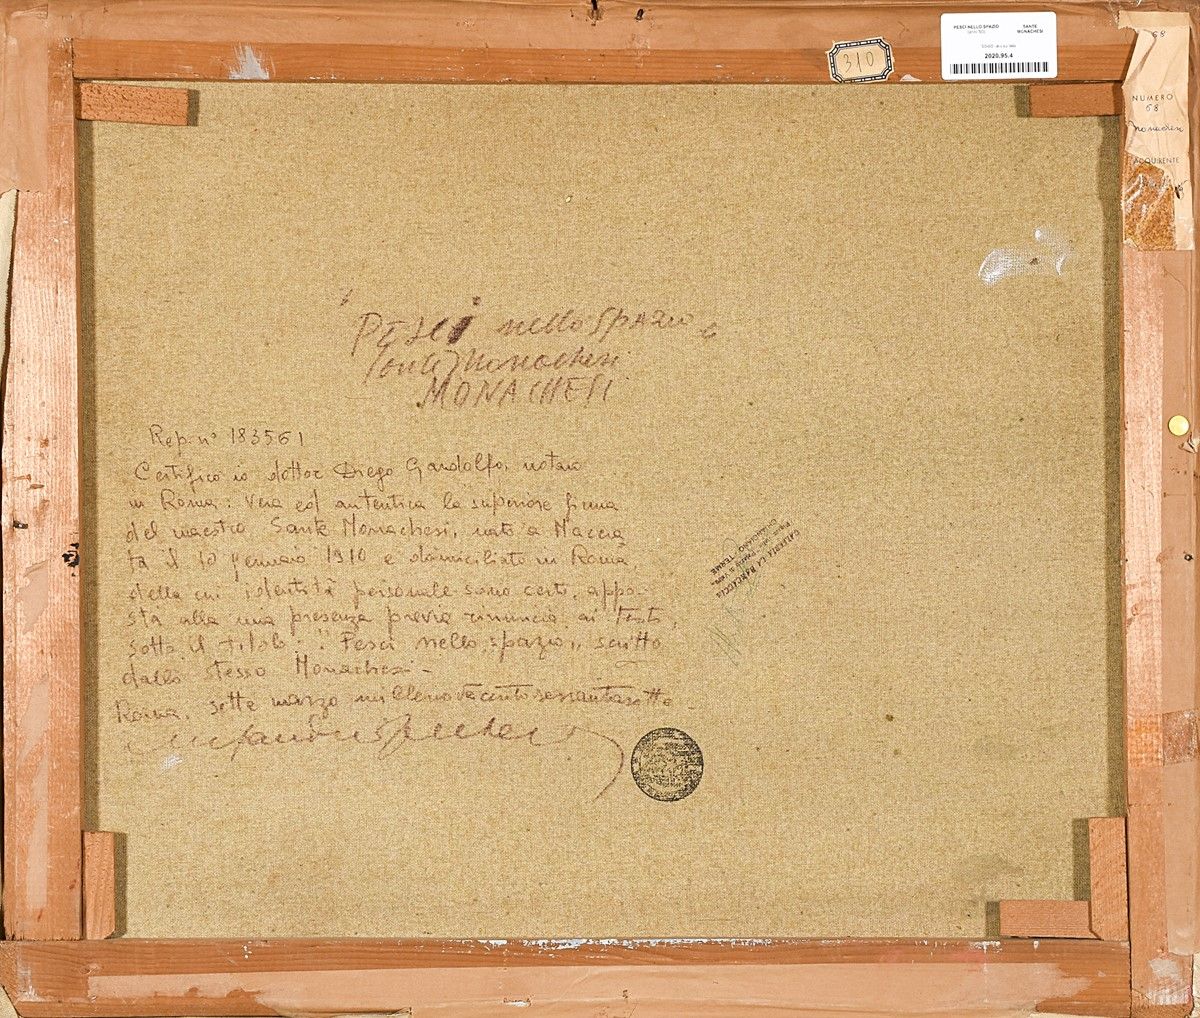 PESCI NELLO SPAZIO
SANTE MONACHESI
2020.95.4
310
68
NUMERO
68
Monachesi
ACQUIRENTE
"PESCI nello SPAZIO
Sante Monachesi
MONACHESI
Rep. n° 183561
Certifico io dottor Diego Gandolfo, notaio
in Roma: vera ed autentica la superiore firma
del maestro Sante Monachesi, nato a Macera
ta il 10 gennaio 1910 e domiciliato in Roma,
della cui identità personale sono certo, appo-
sta alla mia presenza previa rinuncia ai testi,
sotto il titolo: "Pesci nello spazio" scritto
dallo stesso Monachesi -
Roma, sette marzo millenovecentosessantasette -
GALLERIA LA BARCACCIA
CHIANCIANO TERME